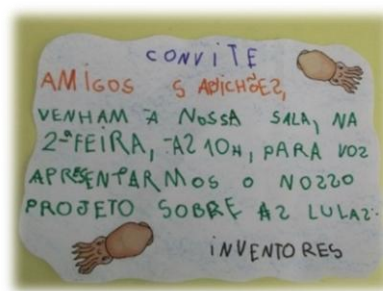 CONVITE
AMIGOS SABICHÕEZ,
VENHAM À NOSSA SALA, NA
2ªFEIRA, ÀZ 10H, PARA VOZ
APRESENTARMOS O NOZZO
PROJETO SOBRE AZ LULAZ.
INVENTORES